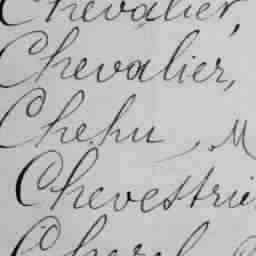 Chevalier,
Chevalier,
Chehu, M
Chevestrie